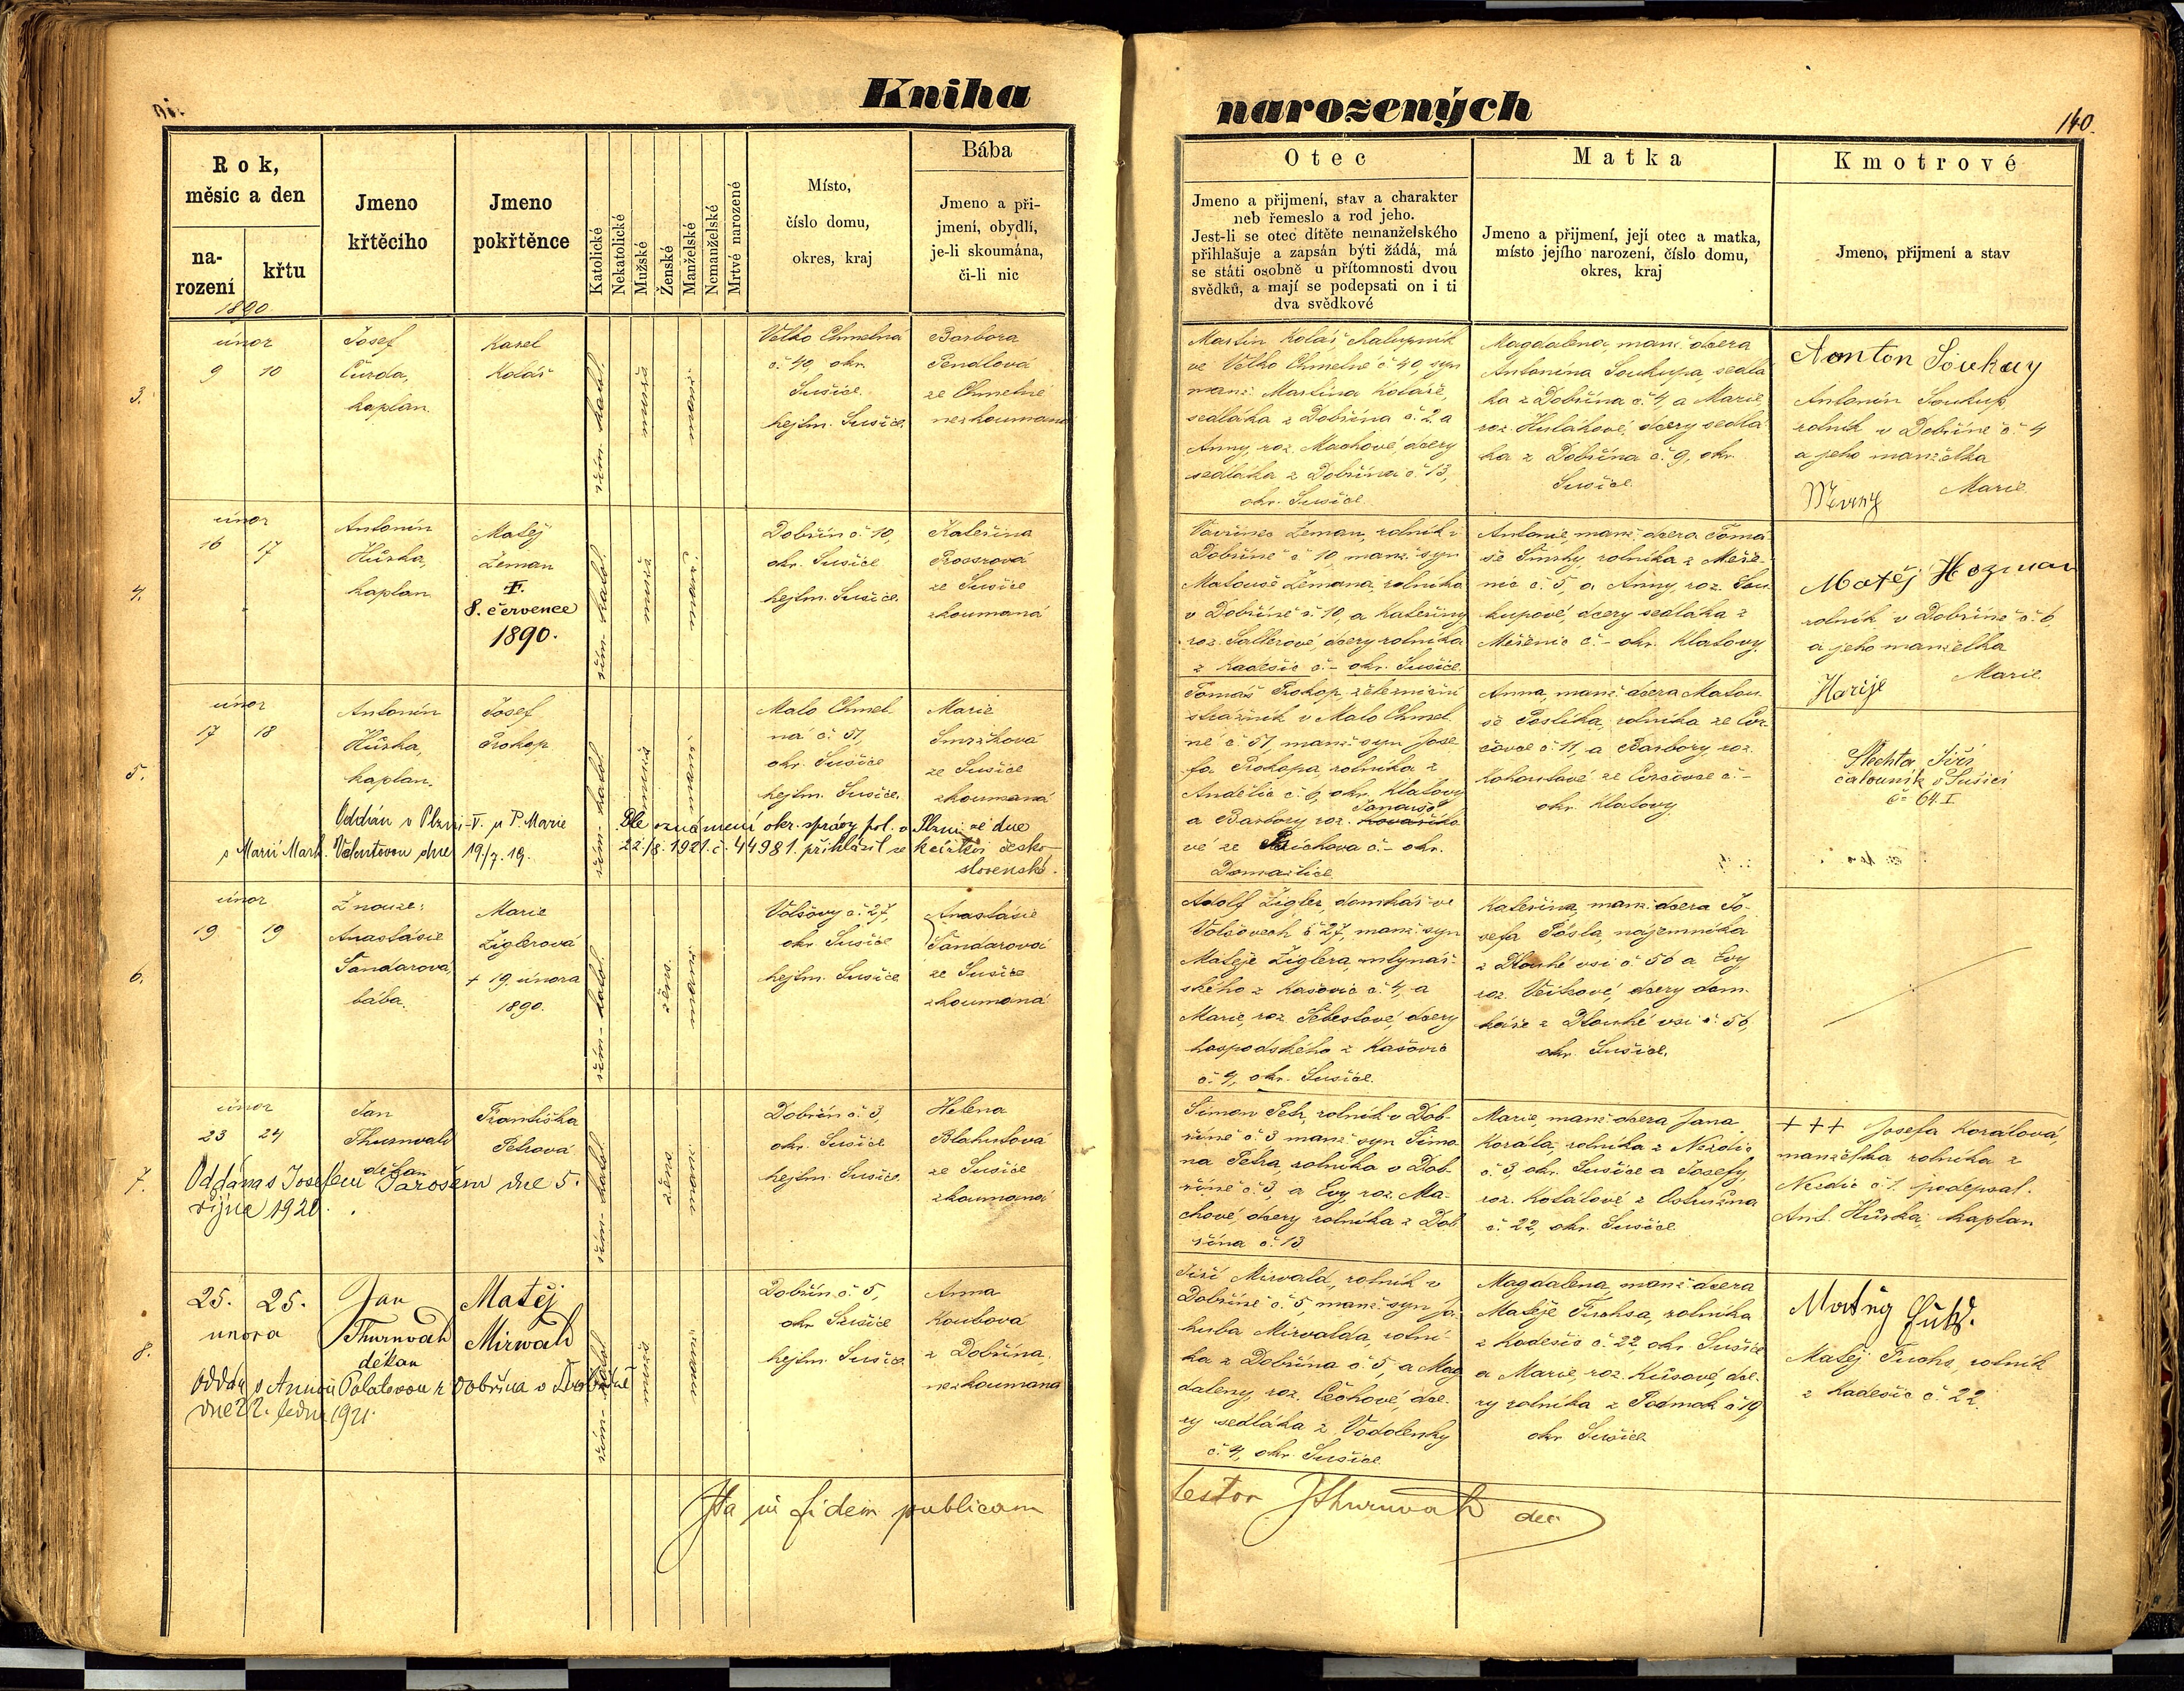 Kniha
narozených
140.
Rok,
měsíc a den
na-
rození
křtu
1890
Jmeno
křtěcího
Jmeno
pokřtěnce
Katolické
Nekatolické
Mužské
Ženské
Manželské
Nemanželské
Mrtvé narozené
Místo,
číslo domu,
okres, kraj
Bába
Jmeno a při-
jmení, obydlí,
je-li skoumána,
či-li nic
Otec
Jmeno a přijmení, stav a charakter
neb řemeslo a rod jeho.
Jest-li se otec dítěte nemanželského
přihlašuje a zapsán býti žádá, má
se státi osobně u přítomnosti dvou
svědků, a mají se podepsati on i ti
dva svědkové
Matka
Jmeno a přijmení, její otec a matka,
místo jejího narození, číslo domu,
okres, kraj
Kmotrové
Jmeno, přijmení a stav
3.
únor
9 10
Josef
Čurda,
kaplan.
Karel
Kolář
řím. katol.
mužské
manž.
Velko Chmelná
č. 40, okr.
Sušice.
hejtm. Sušice.
Barbora
Pendlová
ze Chmelne
neskoumaná
Martin Kolář chalupník
ve Velko Chmelné č. 40, syn
manž. Martina Koláře,
sedláka z Dobřína č. 2 a
Anny, roz. Machové, dcery
sedláka z Dobřína č. 13,
okr. Sušice.
Magdalena, manž. dcera
Antonína Soukupa, sedlá
ka z Dobřína č. 4, a Marie,
roz. Hulákové, dcery sedlá
ka z Dobřína č. 9, okr.
Sušice.
Anton Soukuy
Antonín Soukup
rolník v Dobříně č. 4
a jeho manželka
Marie.
4.
únor
16 17
Antonín
Hůrka,
kaplan.
Matěj
Zeman
8. července
1890.
řím. katol.
mužsk.
manž.
Dobřín č. 10,
okr. Sušice
hejtm. Sušice.
Kateřina
Prosrová
ze Sušice
zkoumaná
Vavřinec Zeman, rolník v
Dobříně č. 10, manž. syn
Matouše Zemana, rolníka
v Dobříně č. 10, a Kateřiny
roz. Sattlerové, dcery rolníka
z Kadešic č. – okr. Sušice.
Antonie, manž. dcera Tomá
še Šmrhy, rolníka z Měče-
nic č. 5, a Anny, roz. Sou
kupové, dcery sedláka z
č. – okr. Klatovy.
Matěj Hozman
rolník v Dobříně č. 6,
a jeho manželka
Marie.
5.
únor
17 18
Antonín
Hůrka,
kaplan.
Josef
Prokop
řím. katol.
mužské
manž.
Malo Chmel-
ná č. 51,
okr. Sušice
hejtm. Sušice.
Marie
Smržková
ze Sušice
zkoumaná
Oddán v Plzni-V. u P. Marie
s Marií Mark. Valentovou dne 19/7. 19.
Dle oznámení okr. správy pol. v Plzni ze dne
22/8. 1921. č. 44981. přihlásil se k církvi česko-
slovenské.
Tomáš Prokop, železniční
strážník v Malo Chmel-
né č. 51, manž. syn Jose
fa Prokopa, rolníka z
Andělic č. 6, okr. Klatovy
a Barbory roz. Janouško
vé ze č. – okr.
Domažlice.
Anna, manž. dcera Matou-
še Paslíka, rolníka ze
č. 11, a Barbory, roz.
Kohoutové ze č. –
okr. Klatovy.
Šlechta Jiří
čalouník v Sušici
č. 64. I.
6.
únor
19 19
Z nouze:
Anastásie
Šandarová,
bába.
Marie
Ziglerová
+ 19. února
1890.
řím. katol.
žens.
manž.
Volšovy č. 27,
okr. Sušice
hejtm. Sušice
Anastásie
Šandarová
ze Sušice
zkoumaná
Adolf Zigler, domkář ve
Volšovech č. 27, manž. syn
Matěje Ziglera, mlynář-
ského z Kašovic č. 4, a
Marie, roz. Šebestové, dcery
hospodského z Kašovic
č. 9, okr. Sušice.
Kateřina, manž. dcera Jo-
sefa Pösla, nájemníka
z Dlouhé vsi č. 56 a Evy
roz. dcery dom-
káře z Dlouhé vsi č. 56,
okr. Sušice.
7.
únor
23 24
Jan
Thurnvald
děkan
Františka
Petrová
řím. katol.
žens.
manž.
Dobřín č. 3,
okr. Sušice
hejtm. Sušice.
Helena
Blahutová
ze Sušice
zkoumaná
Oddána s Josefem Jarošem dne 5.
října 1920.
Šimon Petr, rolník v Dob-
říně č. 3 manž. syn Šimo
na Petra, rolníka v Dob-
říně č. 3, a Evy roz. Ma-
chové, dcery rolníka z Dob-
řína č. 13.
Marie, manž. dcera Jana
Korála, rolníka z Nezdic
č. 3, okr. Sušice a Josefy,
roz. Kolářové z Ostružna
č. 22, okr. Sušice.
+++ Josefa Korálová,
manželka rolníka z
Nezdic č. 1. podepsal.
Ant. Hůrka, kaplan
8.
25. 25.
února
Jan
Thurnvald
děkan
Matěj
Mirwald
řím. katol.
mužské
manž.
Dobřín č. 5,
okr. Sušice
hejtm. Sušice.
Anna
Koubová
z Dobřína,
neskoumaná
Oddán s Annou Polatovou z Dobřína v
dne 22. ledna 1921.
Jiří Mirvald, rolník v
Dobříně č. 5, manž. syn Ja-
kuba Mirvalda, rolní-
ka z Dobřína č. 5, a Mag
daleny, roz. Čechové, dce-
ry sedláka z Vodolenky
č. 4, okr. Sušice.
Magdalena, manž. dcera
Matěje Fuchsa, rolníka
z Kadešic č. 22, okr. Sušice
a Marie, roz. Kůsové, dce-
ry rolníka z Podmok č. 19,
okr. Sušice
Matěj Fuchs, rolník
z Kadešic č. 22.
Ita in fidem publicam
testor JThurnwald dec